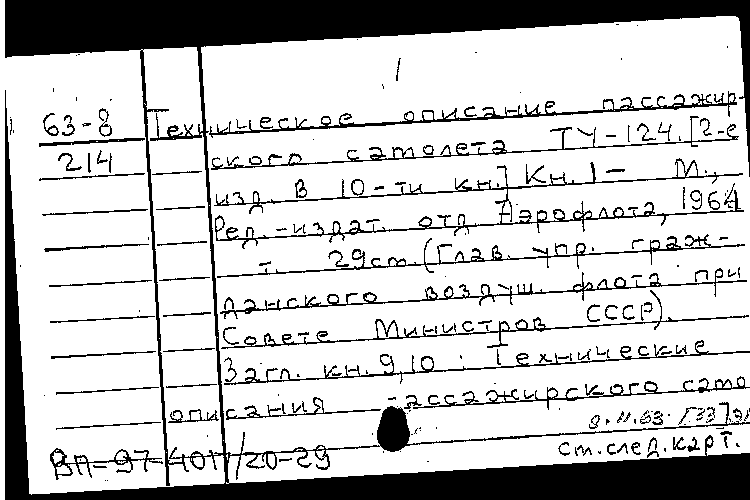 1
63-8 Техническое описание пассажир-
214 ского самолета ТУ-124. [2-е
изд. В 10-ти кн.] Кн. 1- М.,
Ред.-издат. отд. Аэрофлота, 1964
т. 29см. (Глав. упр. граж-
данского воздуш. флота при
Совете Министров СССР).
Загл. кн. 9,10 : Технические
описания -ассажирского само
[33]
ВП-97-4017/20-29 см. след. карт.